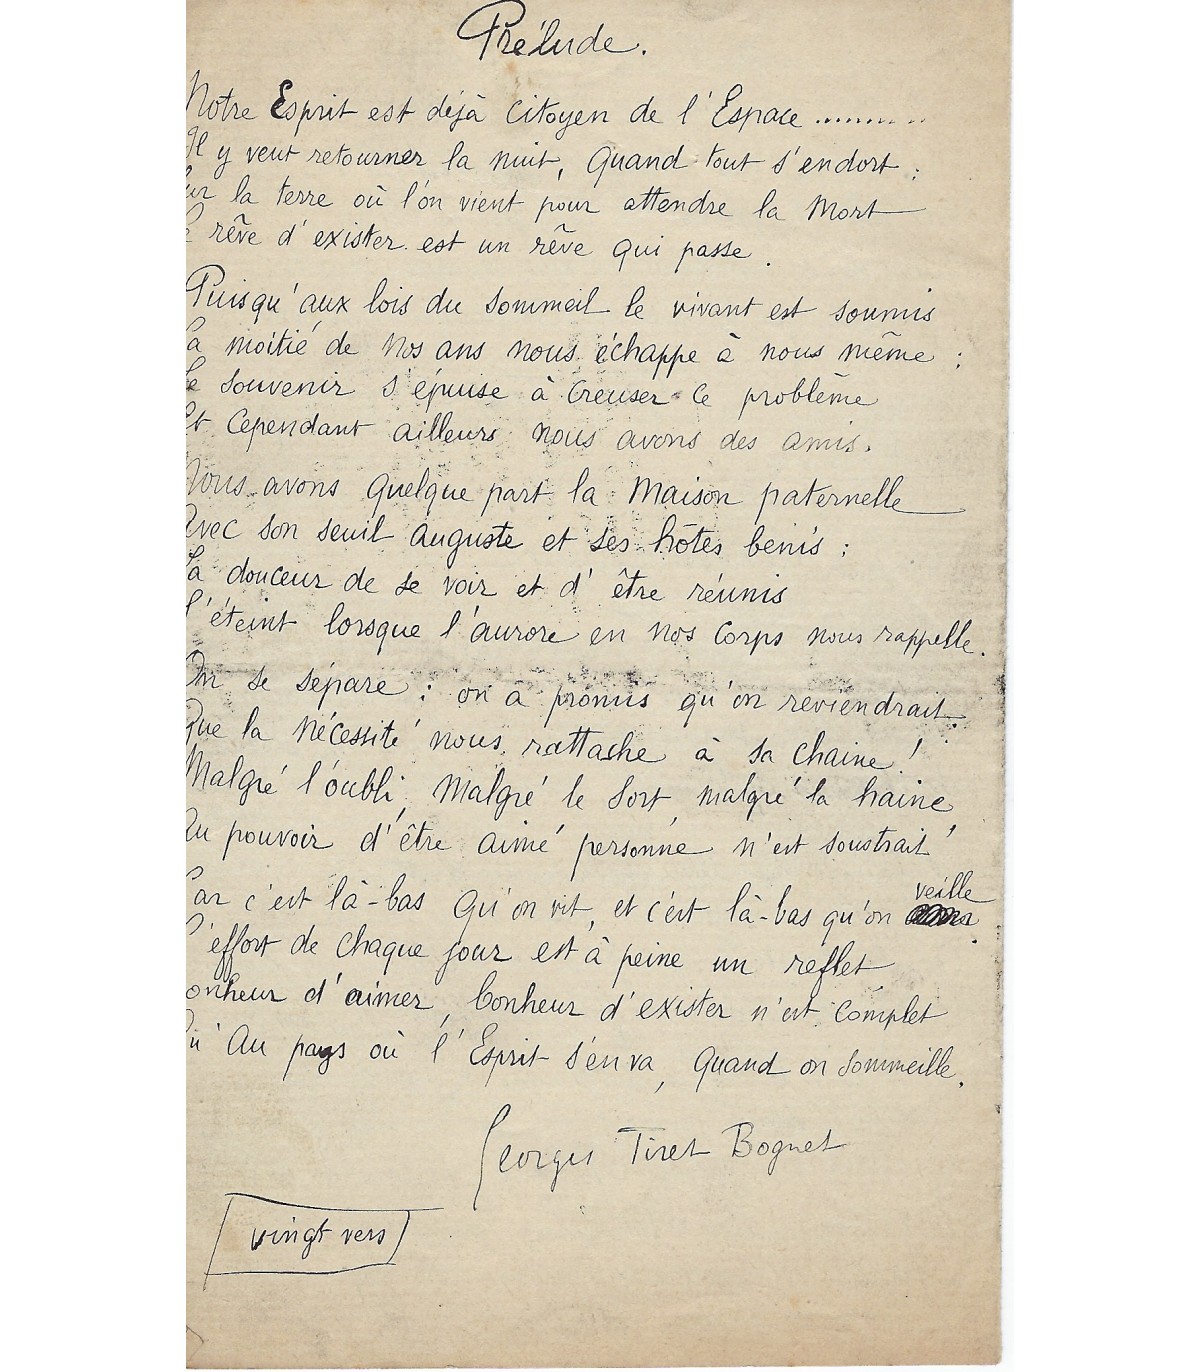 Prélude.
Notre Esprit est déjà citoyen de l'Espace ..........
Il y veut retourner la nuit, quand tout s'endort ;
ur la terre où l'on vient pour attendre la Mort
e rêve d'exister est un rêve qui passe.
Puisqu'aux lois du sommeil le vivant est soumis
La moitié de nos ans nous échappe à nous même ;
Le souvenir s'épuise à creuser ce problème
Et cependant ailleurs nous avons des amis.
Nous avons quelque part la Maison paternelle
Avec son seuil auguste et ses hôtes bénis ;
La douceur de se voir et d'être réunis
S'éteint lorsque l'aurore en nos corps nous rappelle.
On se sépare ; on a promis qu'on reviendrait.
Que la Nécessité nous rattache à sa chaine !
Malgré l'oubli, Malgré le sort, malgré la haine,
Au pouvoir d'être aimé personne n'est soustrait
veille
Car c'est là-bas qu'on vit, et c'est là-bas qu'on
L'effort de chaque jour est à peine un reflet
onheur d'aimer, bonheur d'exister n'est complet
u'Au pays où l'Esprit s'en va, quand on sommeille.
Georges Tiret Bognet
vingt vers